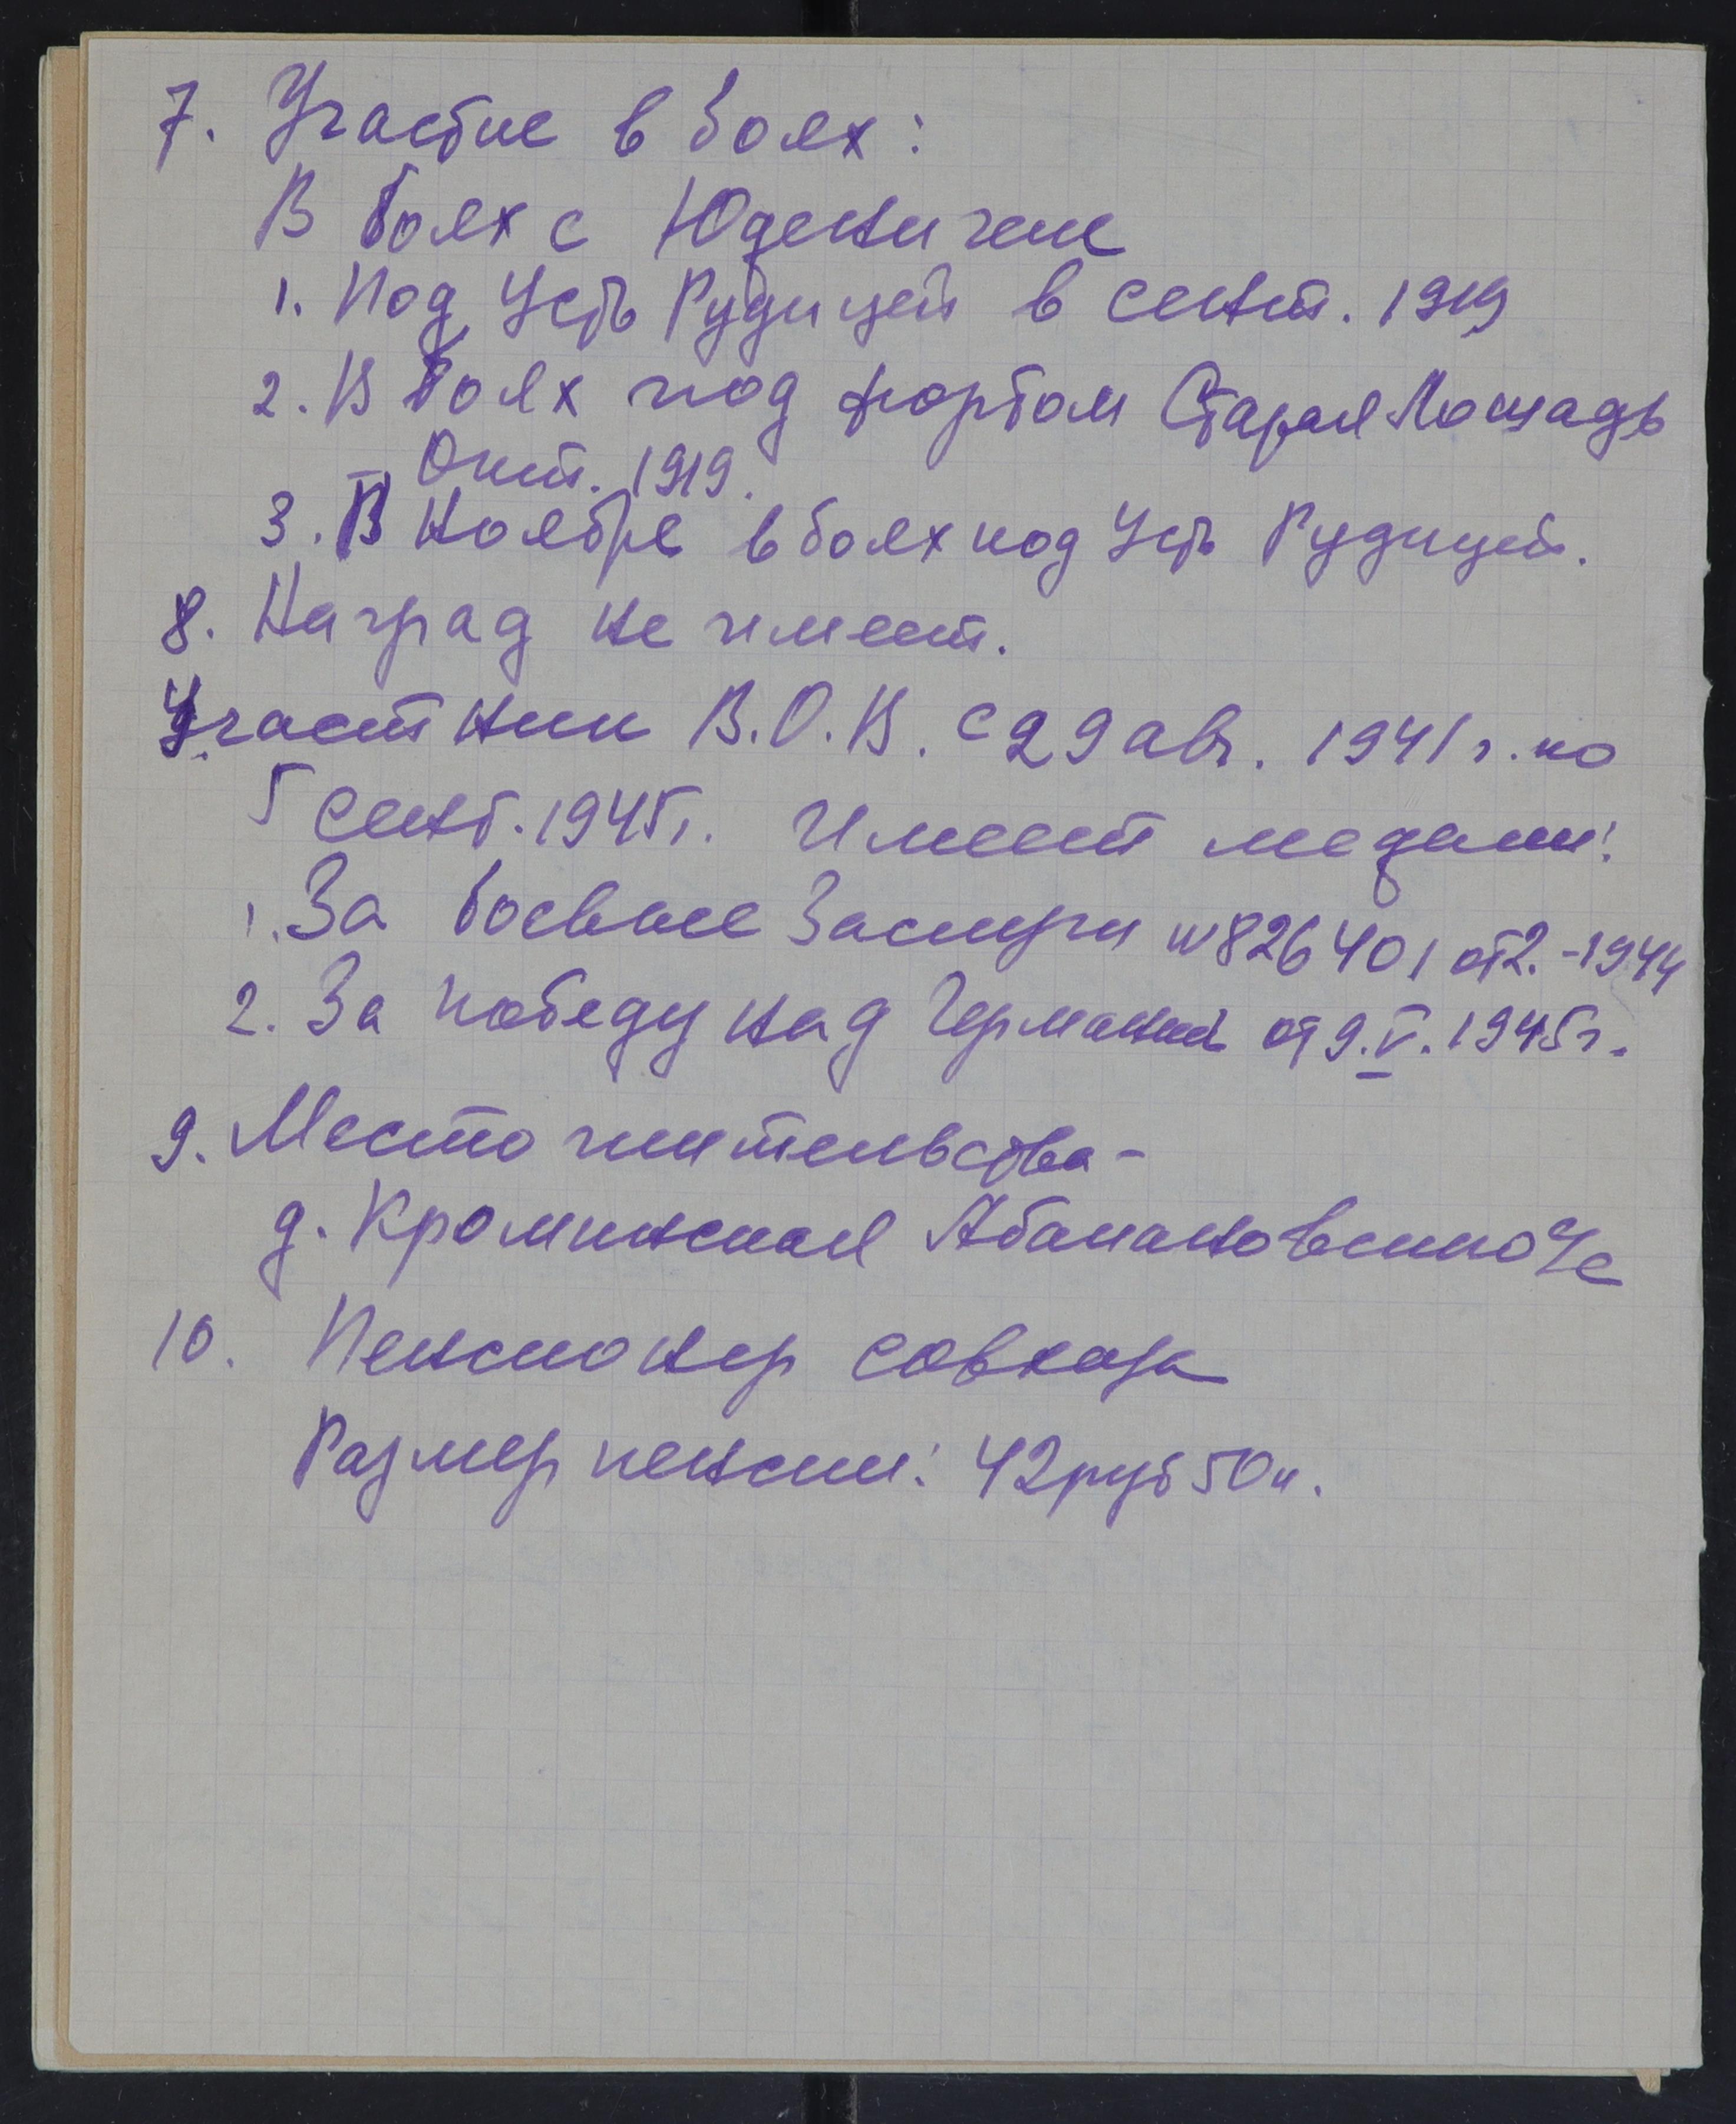 7. Участие в боях:
В боях с Юденичем
1. Под Усть Рудицей в сент. 1919
2. В боях под фортом Старая Лошадь
Окт. 1919.
3. В ноябре в боях под Усть Рудицей.
8. Наград не имеет.
Участник В.О.В. с 29 авг. 1941 г. по
5 сент. 1945 г. Имеет медали:
1. За боевые Заслуги №826401 от 2.-1944
2. За победу над Германией от 9.V.1945 г.
9. Место жительства -
д. Кроминская
10. Пенсионер совхоза
Размер пенсии: 42 руб 50 к.